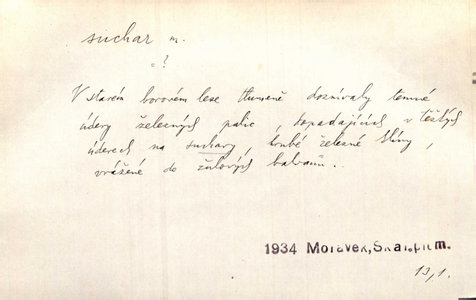 suchar m.
= ?
V starém borovém lese tlumeně doznívaly temné
údery železných palic, dopadajících v těžkých
úderech na suchary, hrubé železné klíny,
vrážené do žulových balvanů..
1934 Morávek, Skal. pl m.
13/1.